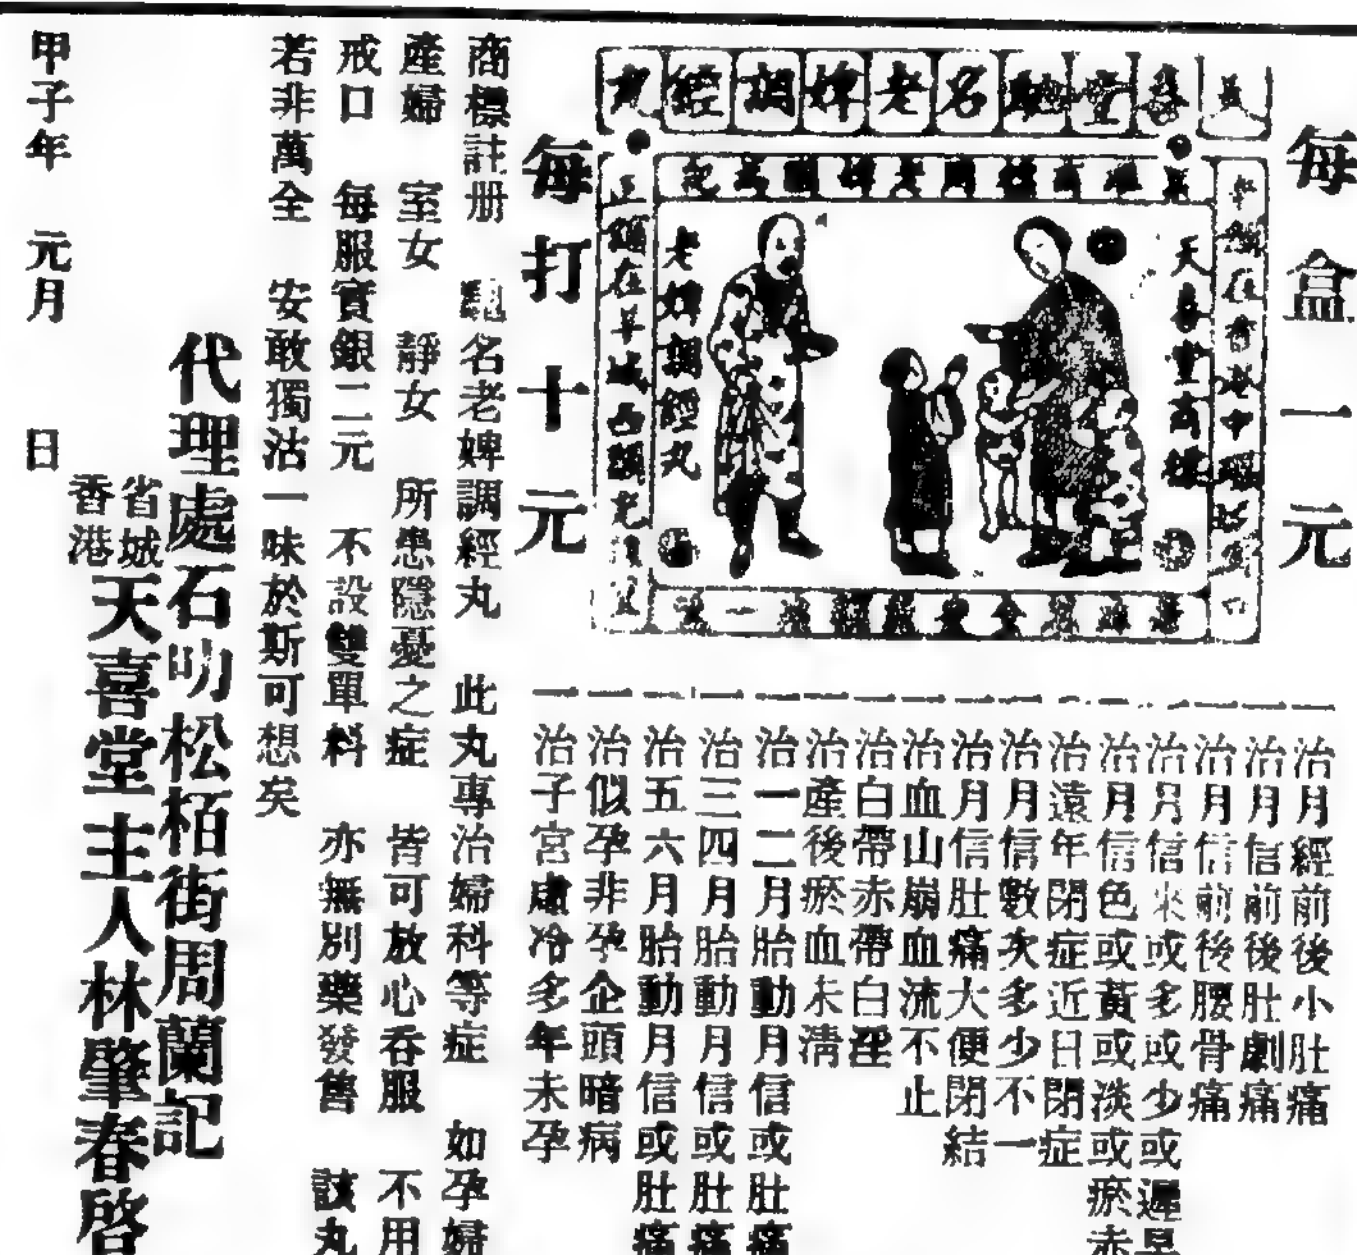 每盒一元
老婢調經丸
每打十元
一治月經前後小肚痛
一治月信前後肚劇痛
一治月信前後腰骨痛
一治月信來或多或少或遲早
一治月信色或黃或淡或瘀赤
一治遠年閉症近日閉症
一治月信數次多少不一
一治月信肚痛大便閉結
一治血山崩血流不止
一治白帶赤帶白淫
一治產後瘀血未淸
一治一二月胎動月信或肚痛
一治三四月胎動月信或肚痛
一治五六月胎動月信或肚痛
一治似孕非孕企頭暗病
一治子宮虛冷多年未孕
商標註册 名老婢調經丸 此丸專治婦科等症 如孕婦
產婦 室女 靜女 所患隱憂之症 皆可放心吞服 不用
戒口 每服實銀二元 不設雙單料 亦無別藥發售 該丸
若非萬全 安敢獨沽一味於斯可想矣
代理處石叻松栢街周蘭記
省城
香港
天喜堂主人林肇春啓
甲子年 元月 日